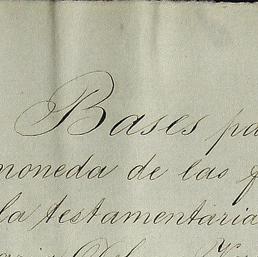 Bases pa
moneda de las f
la testamentaria